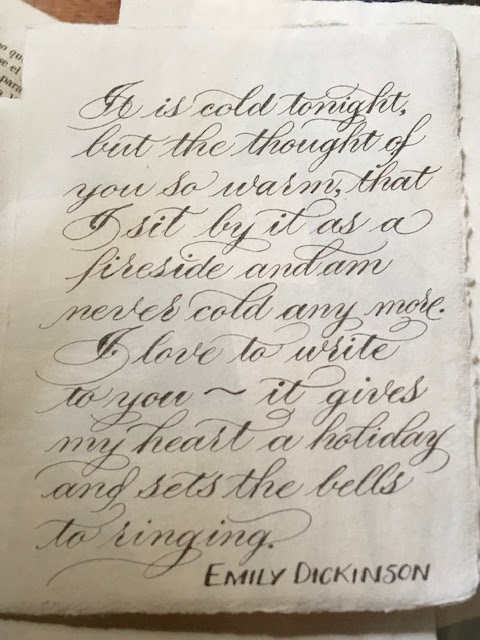 It is cold tonight,
but the thought of
you so warm, that
I sit by it as a
fireside and am
never cold any more.
I love to write
to you ~ it gives
my heart a holiday
and sets the bells
to ringing.
EMILY DICKINSON
para